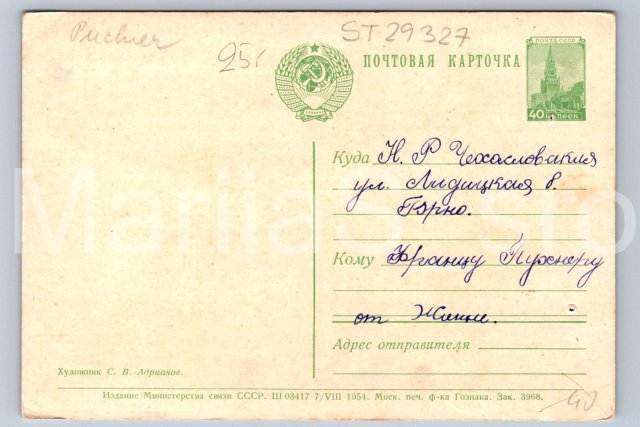 ST 29327
25,-
ПОЧТОВАЯ КАРТОЧКА
ПОЧТА СССР
40 КОПЕЕК
Куда Н. Р Чехословакия
ул. Лидицкая 8.
Бэрно.
Кому Францу Пухнеру
от Жанне.
Адрес отправителя
Художник С. В. Адрианов.
Издание Министерства связи СССР. Ш 03417 7/VIII 1954. Моск. печ. ф-ка Гознака. Зак. 3968.
40